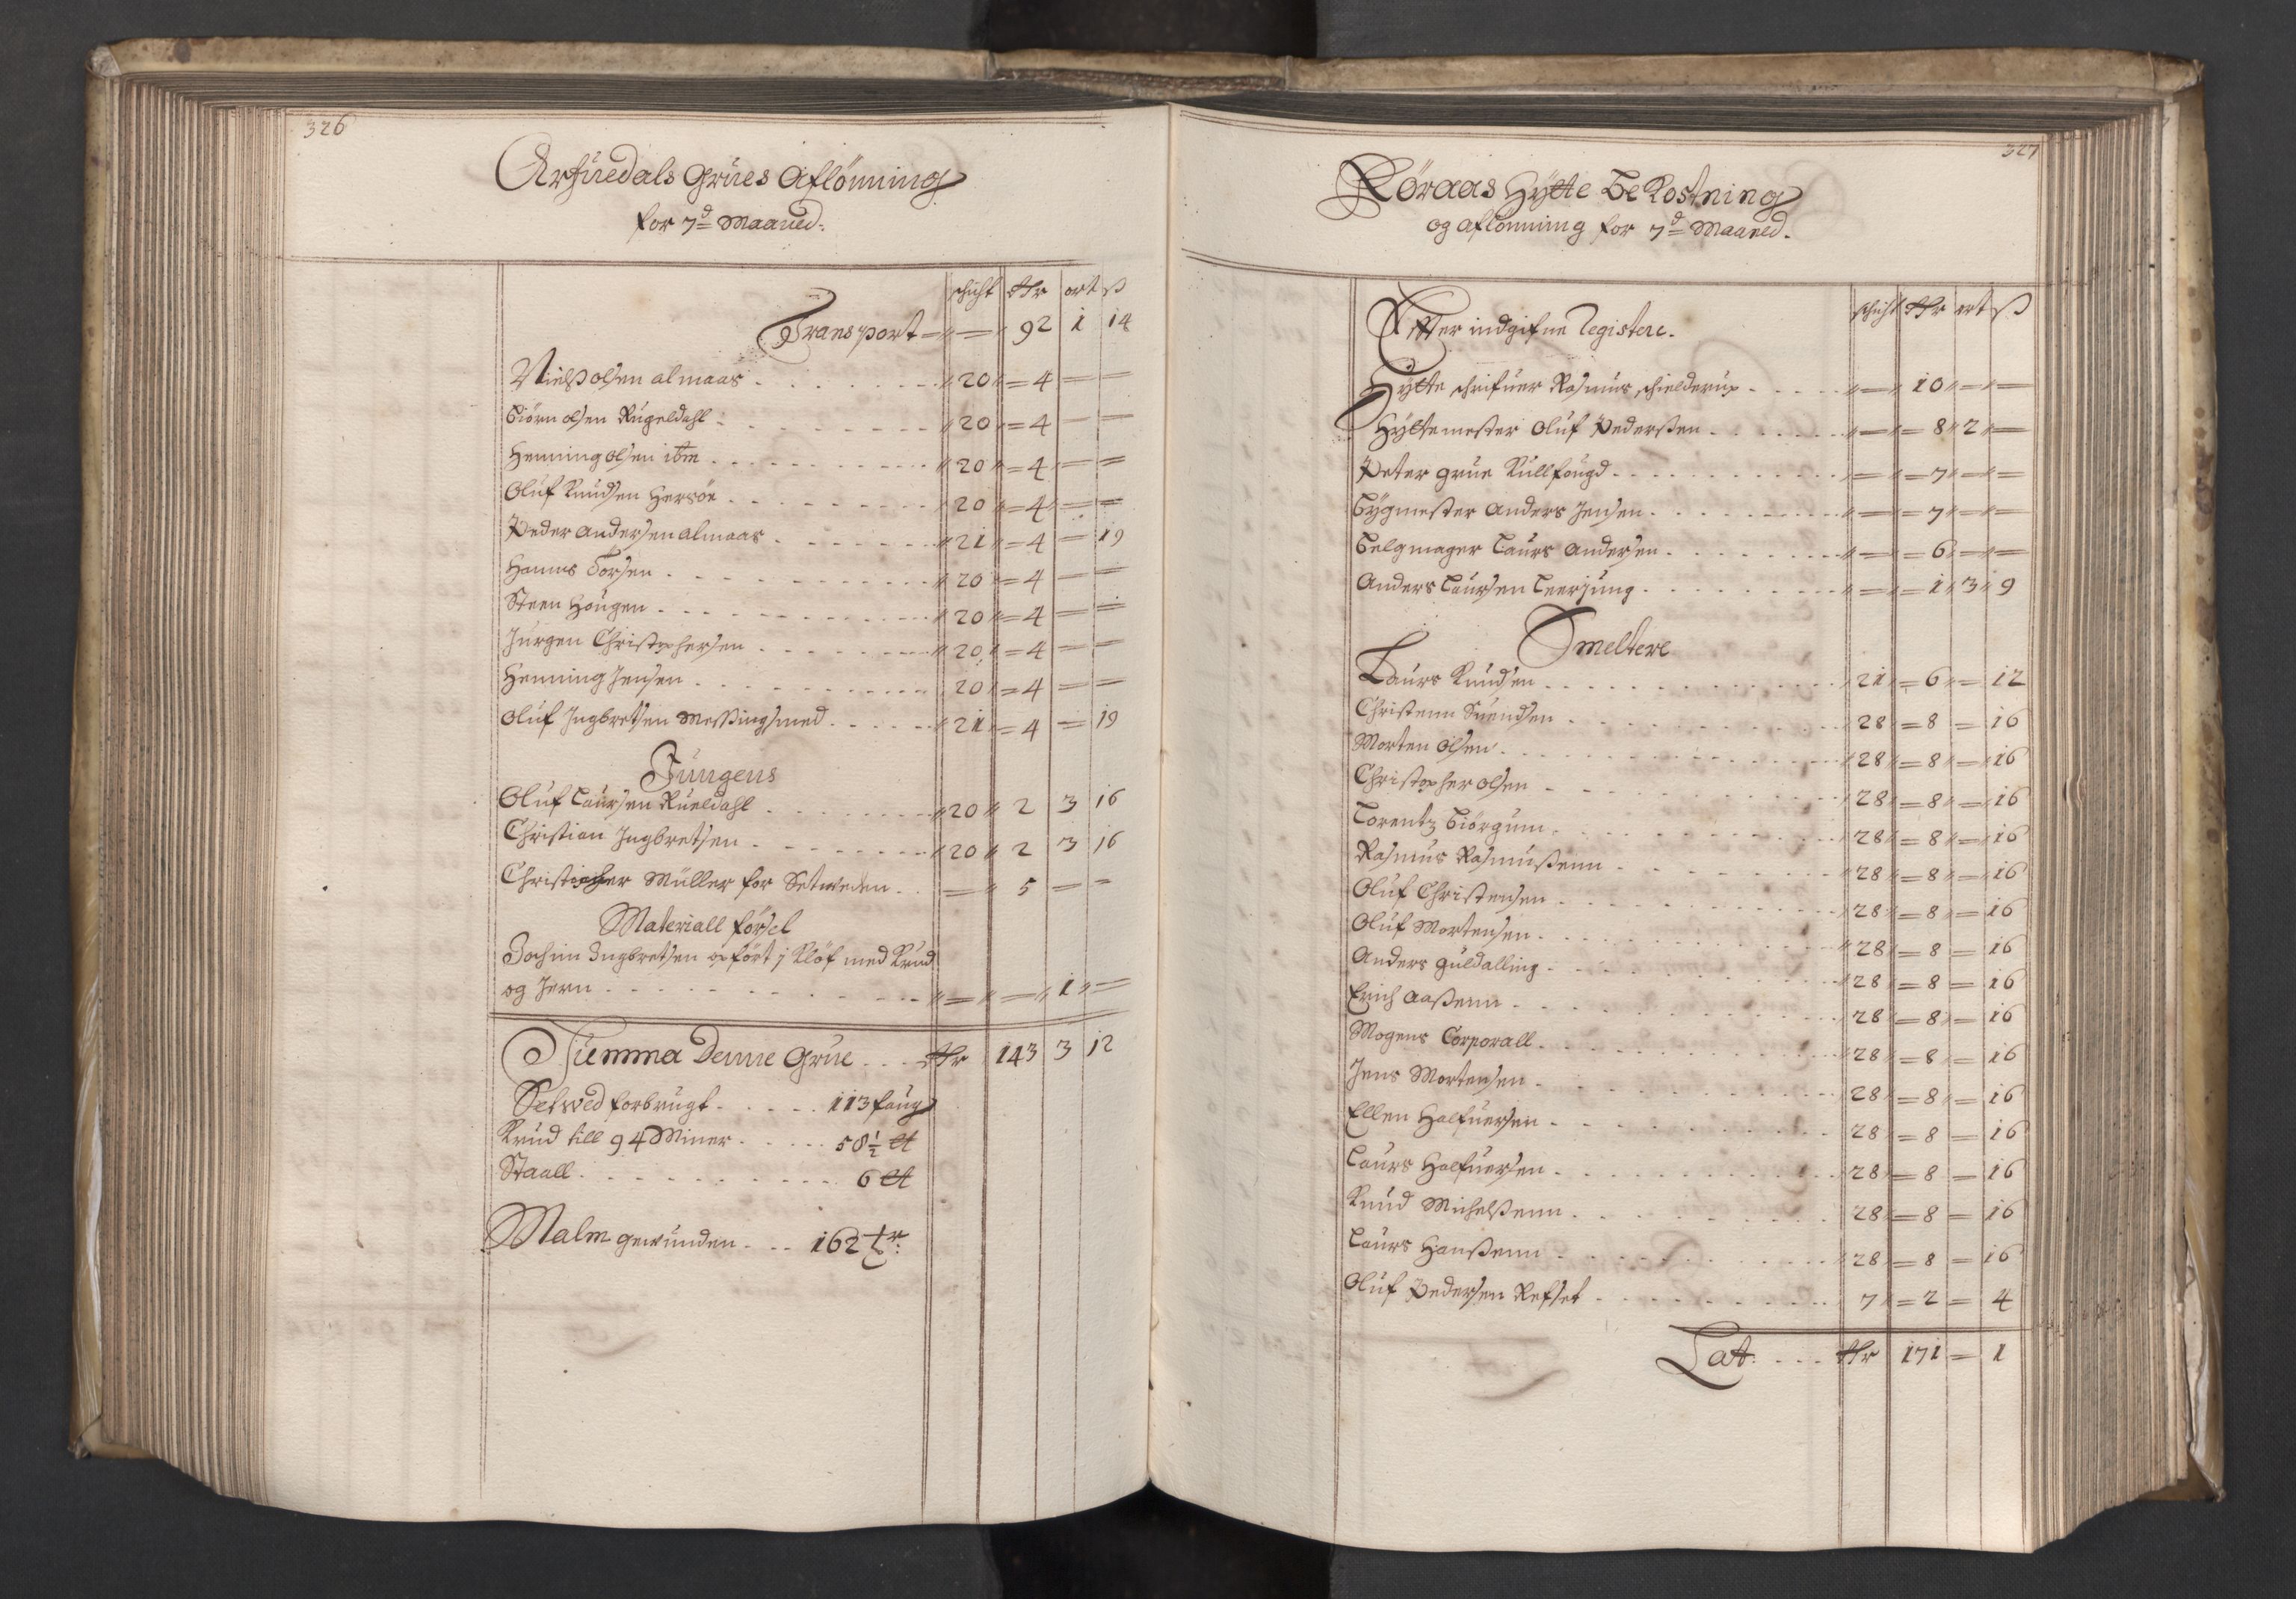 326
Arfuedals Grues Aflönning
for 7d Maaned.
schicht Rdr ort ß
Transport = „ — „ 92 1 14
Nielß olsen almaas . . . „ 20 „ = 4 — —
Biörn olsen Rugeldahl . . . „ 20 „ = 4 — —
Henning olsen ibm . . . „ 20 „ = 4 — =
Oluf Knudsen Hersöe . . . „ 20 „ = 4 — =
Peder Andersen almaas . . . „ 21 „ = 4 — 19
Hanns Torsen . . . „ 20 = 4 — —
Steen Hougen . . . „ 20 „ = 4 — =
Jürgen Christophersen . . . „ 20 „ = 4 — —
Henning Jensen . . . 20 „ = 4 — —
Oluf Ingbretsen Meßingsmed . . . „ 21 „ = 4 — 19
Jungens
Oluf Laursen Rueldahl . . . „ 20 „ 2 3 16
Christian Ingbretsen . . . „ 20 „ 2 3 16
Müller for Setweden . . — „ 5 — —
Materiall försel
Jochim Ingbretsen opfört i Klöf med Krud
og Jern . . . „ — „ — „ 1 „ —
Summa Denne Grue . . . Rdr 143 3 12
Setwed forbrugt . . . 113 faug
Krud till 94 Miner . . . 58 1/2 ℔
Staall . . . 6 ℔
Malm gewunden . . . 162 tr:
327
Röraas Hytte Bekostning
og aflönning for 7d Maaned.
schicht Rdr ort ß
Effter indgifne Registere.
Hytte schrifuer Rasmus schielderup . . . „ — „ 10 „ — „ —
Hyttemester Oluf Pederßen . . . „ — „ = 8 „ 2 „ —
Peter grue Kullfougd . . . „ — „ = 7 „ — „ =
Bygmester Anders Jensen . . . „ — „ = 7 „ — „ —
Belgmager Laurs Andersen . . . „ — „ = 6 „ — „ —
Anders Laursen Leerjung . . . „ — „ = 1 „ 3 „ 9
Smeltere
Laurs Knudsen . . . „ 21 „ = 6 „ = 12
Christenn Suendsen . . . 28 = 8 — 16
Morten Olsen . . . „ 28 „ = 8 „ — „ 16
Christopher olsen . . . „ 28 „ = 8 „ — „ 16
Lorentz Biörgum . . . „ 28 „ = 8 „ — „ 16
Rasmus Rasmußenn . . . „ 28 „ = 8 „ — „ 16
Oluf Christensen . . . „ 28 „ = 8 „ — 16
Oluf Mortensen . . . „ 28 „ = 8 — 16
Anders Guldalling . . . „ 28 „ = 8 = 16
Erich Aaßenn . . . 28 = 8 „ — 16
Mogens Corporall . . . „ 28 „ = 8 „ — 16
Jens Mortensen . . . 28 „ = 8 „ — 16
Ellen Halfuersen . . . 28 „ = 8 — 16
Laurs Halfuersen . . . „ 28 „ = 8 — 16
Knud Michelßenn . . . 28 „ = 8 — 16
Laurs Hanßenn . . . „ 28 „ = 8 — 16
Oluf Pedersen Refset . . . 7 „ = 2 = 4
Lat . . . Rdr 171 — 1